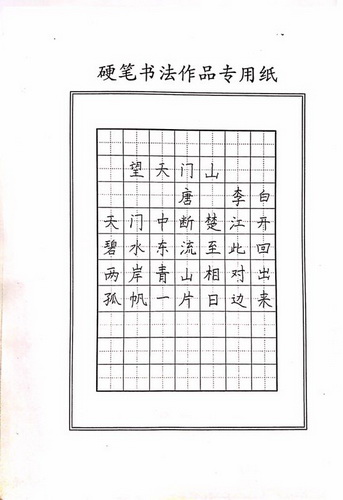 硬笔书法作品专用纸
望天门山
唐 李白
天门中断楚江开
碧水东流至此回
两岸青山相对出
孤帆一片日边来